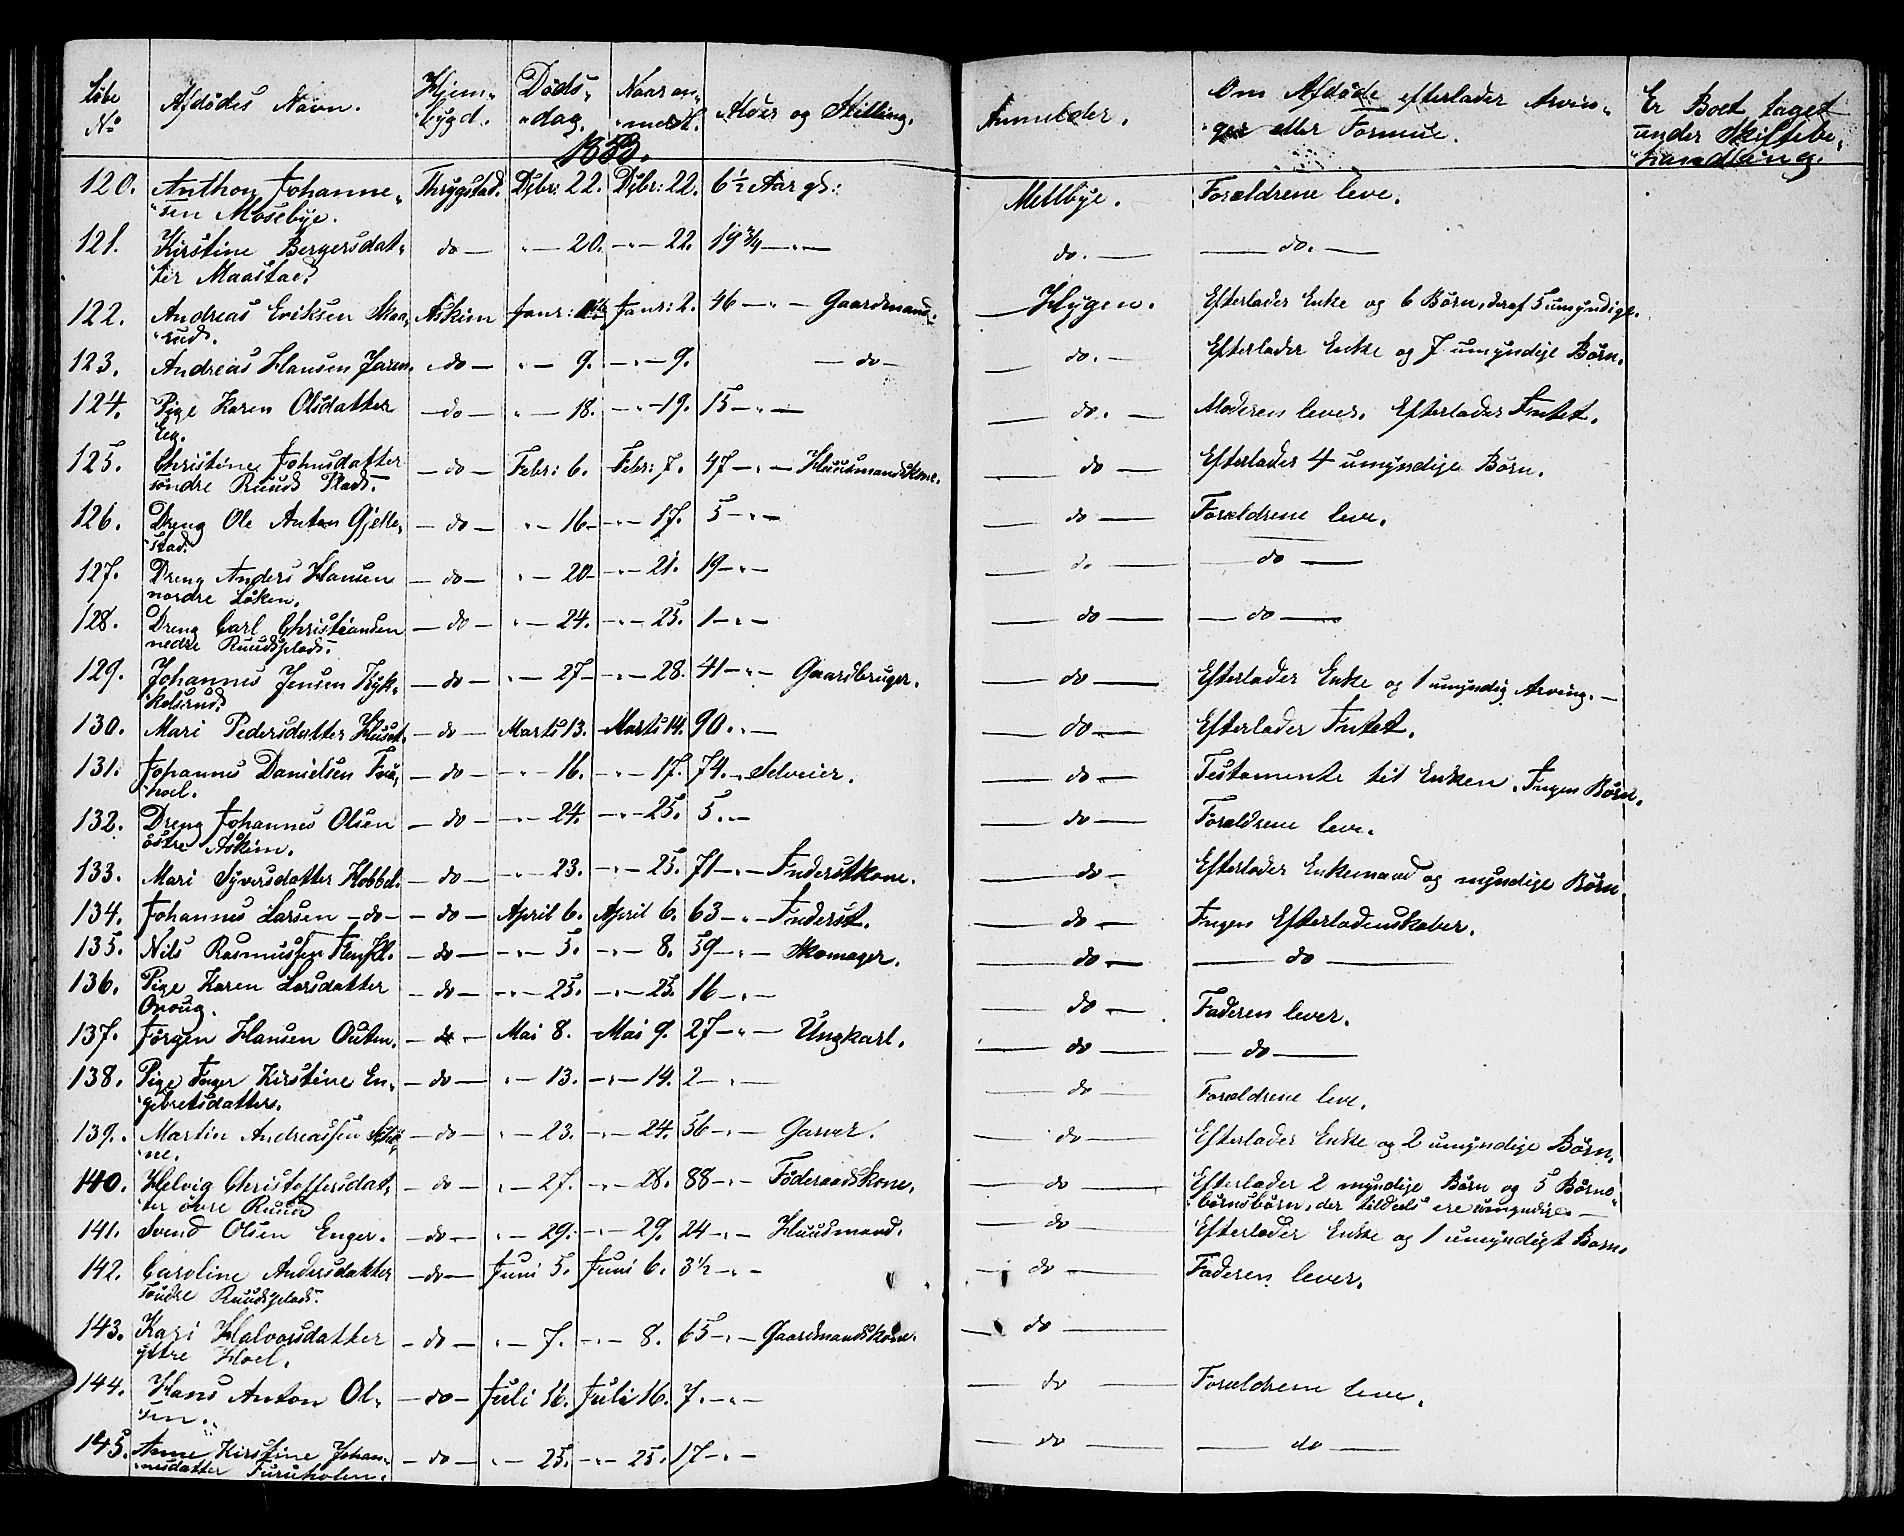 Løbe No | Afdødes Navn. | Hjem-bygd. | Døds-dag. | Naar an-meldt. | Alder og Stilling. | Anmelder. | Om Afdøde efterlader Arvin-ger eller Formue. | Er Boet taget under Skiftebe-handling.
120. Anthon Johanne- Thrygstad. Dcbr: 22. Dcbr: 22. 6 1/2 Aar gl: Mellbye. Forældrene leve.
sen Mosebye.
121. Kirstine Bergersdat- do — " — 20. — " — 22. 19 3/4 — " — do. — do. —
ter Maastad.
122. Andreas Eriksen Skaa- Askim Janr: Janr: 2. 46 — " — Gaardmand. Hygen. Efterlader Enke og 6 Børn, deraf 5 umyndige.
rud.
123. Andreas Hansen Jaren. do — " — 9. — " — 9. — do — do. — Efterlader Enke og 7 umyndige Børn.
124. Pige Karen Olsdatter — do — " — 18. — " — 19. 15 — " — do. — Moderen lever. Efterlader Intet.
Eeg.
125. Christine Johnsdatter — do — Febr: 6. Febr: 7. 47 — " — Huusmandskone. do — Efterlader 4 umyndige Børn.
søndre Ruuds Plads.
126. Dreng Ole Anton Gjelle- — do — " — 16 — " — 17. 5 — " — do — Forældrene leve.
stad.
127. Dreng Anders Hansen — do — " — 20 — " — 21. 19 — " — do — do —
nordre Løken.
128. Dreng Carl Christiansen — do — " — 24. — " — 25. 1 — " — do — do —
nedre Ruudsplads.
129. Johannes Jensen Kyk- — do — " — 27 — " — 28. 41 — " — Gaardbruger. do — Efterlader Enke og 1 umyndig Arving. —
kelsrud.
130. Mari Pedersdatter Huset. — do — Marts 13. Marts 14. 90. " — do — Efterlader Intet.
131. Johannes Danielsen — do — " — 16. — " — 17. 74. " Selveier. do — Testamente til Enken. Ingen Børn.
hoel.
132. Dreng Johannes Olsen — do — " — 24. — " — 25. 5. " — do — Forældrene leve.
østre Askim.
133. Mari Syversdatter Hobbel. — do — " — 23. — " — 25. 71 — " — Inderstkone. do — Efterlader Enkemand og myndige Børn.
134. Johannes Larsen — do — — do — April 6. April 6. 63 — " — Inderst. do — Ingen Efterladenskaber.
135. Nils Rasmussen — do — " — 5. — " — 8. 59 — " — Skomager. do — do —
136. Pige Karen Larsdatter — do — " — 25. — " — 25. 16 — " — do — Faderen lever.
Onoug.
137. Jørgen Hansen Outen. — do — Mai 8. Mai 9. 27 — " — Ungkarl. do — do —
138. Pige Inger Kirstine En- — do — " — 13. — " — 14. 2 — " — do — Forældrene leve.
gebretsdatter.
139. Martin Andreassen — do — " — 23. — " — 24. 56 — " — Garver. do — Efterlader Enke og 2 umyndige Børn.
140. Helvig Christoffersdat- — do — " — 27. — " — 28. 88 — " — Føderaadskone. do — Efterlader 2 myndige Børn og 5 Børne-
ter øvre Ruud børnsbørn, der tildeels ere umyndige —
141. Svend Olsen Enger. — do — " — 29. — " — 29. 24 — " — Huusmand. do — Efterlader Enke og 1 umyndigt Barn.
142. Caroline Andersdatter — do — Juni 5. Juni 6. 3 1/2 — " — do — Faderen lever.
søndre Ruudsplads.
143. Kari Halvorsdatter — do — " — 7. — " — 8. 65 — " — Gaardmandskone. do —
yttre Hoel.
144. Hans Anton Ol- — do — Juli 16. Juli 16. 7. — " — do — Forældrene leve.
sen.
145. Anne Kirstine Johan- — do — " — 25. — " — 25. 17 — " — do — do —
nesdatter Furuholen.